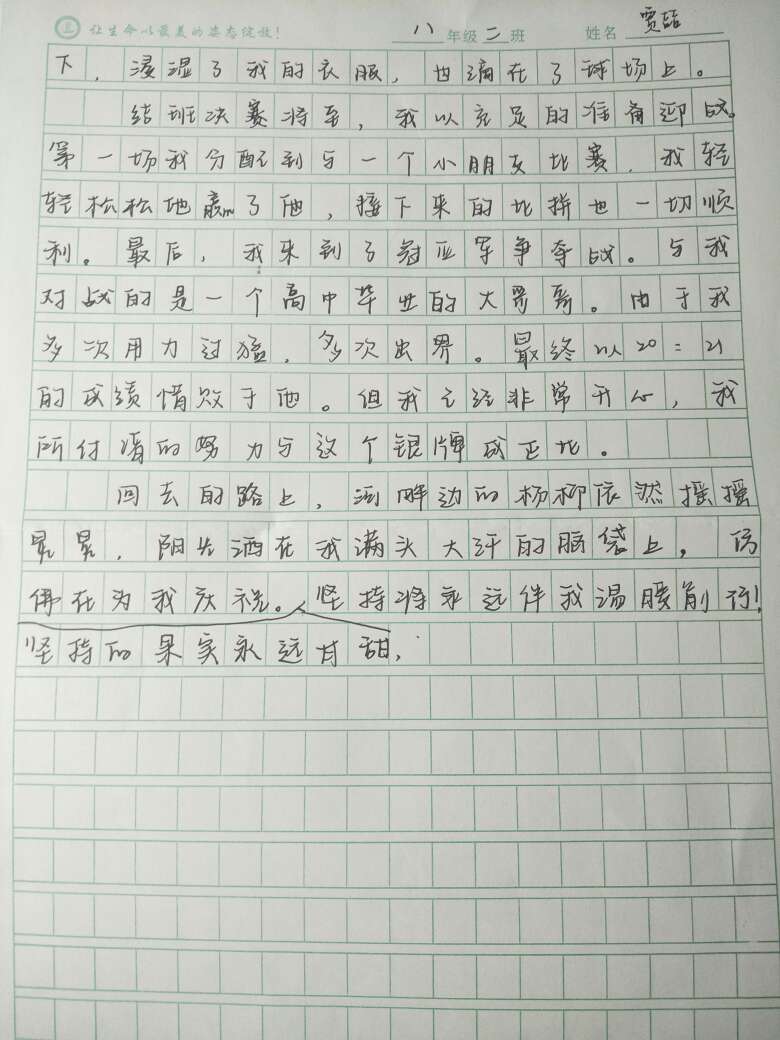 让生命以最美的姿态绽放! 八年级二班 姓名 贾喆
下，浸湿了我的衣服，也滴在了球场上。
结班决赛将至，我以充足的准备迎战。
第一场我分配到与一个小朋友比赛，我轻
轻松松地赢了他，接下来的比拼也一切顺
利。最后，我来到了冠亚军争夺战。与我
对战的是一个高中毕业的大哥哥。由于我
多次用力过猛，多次出界。最终以20:21
的成绩惜败于他。但我已经非常开心，我
所付清的努力与这个银牌成正比。
回去的路上，河畔边的杨柳依然摇摇
晃晃，阳光洒在我满头大汗的脑袋上，仿
佛在为我庆祝。坚持将永远伴我温暖前行!
坚持的果实永远甘甜，